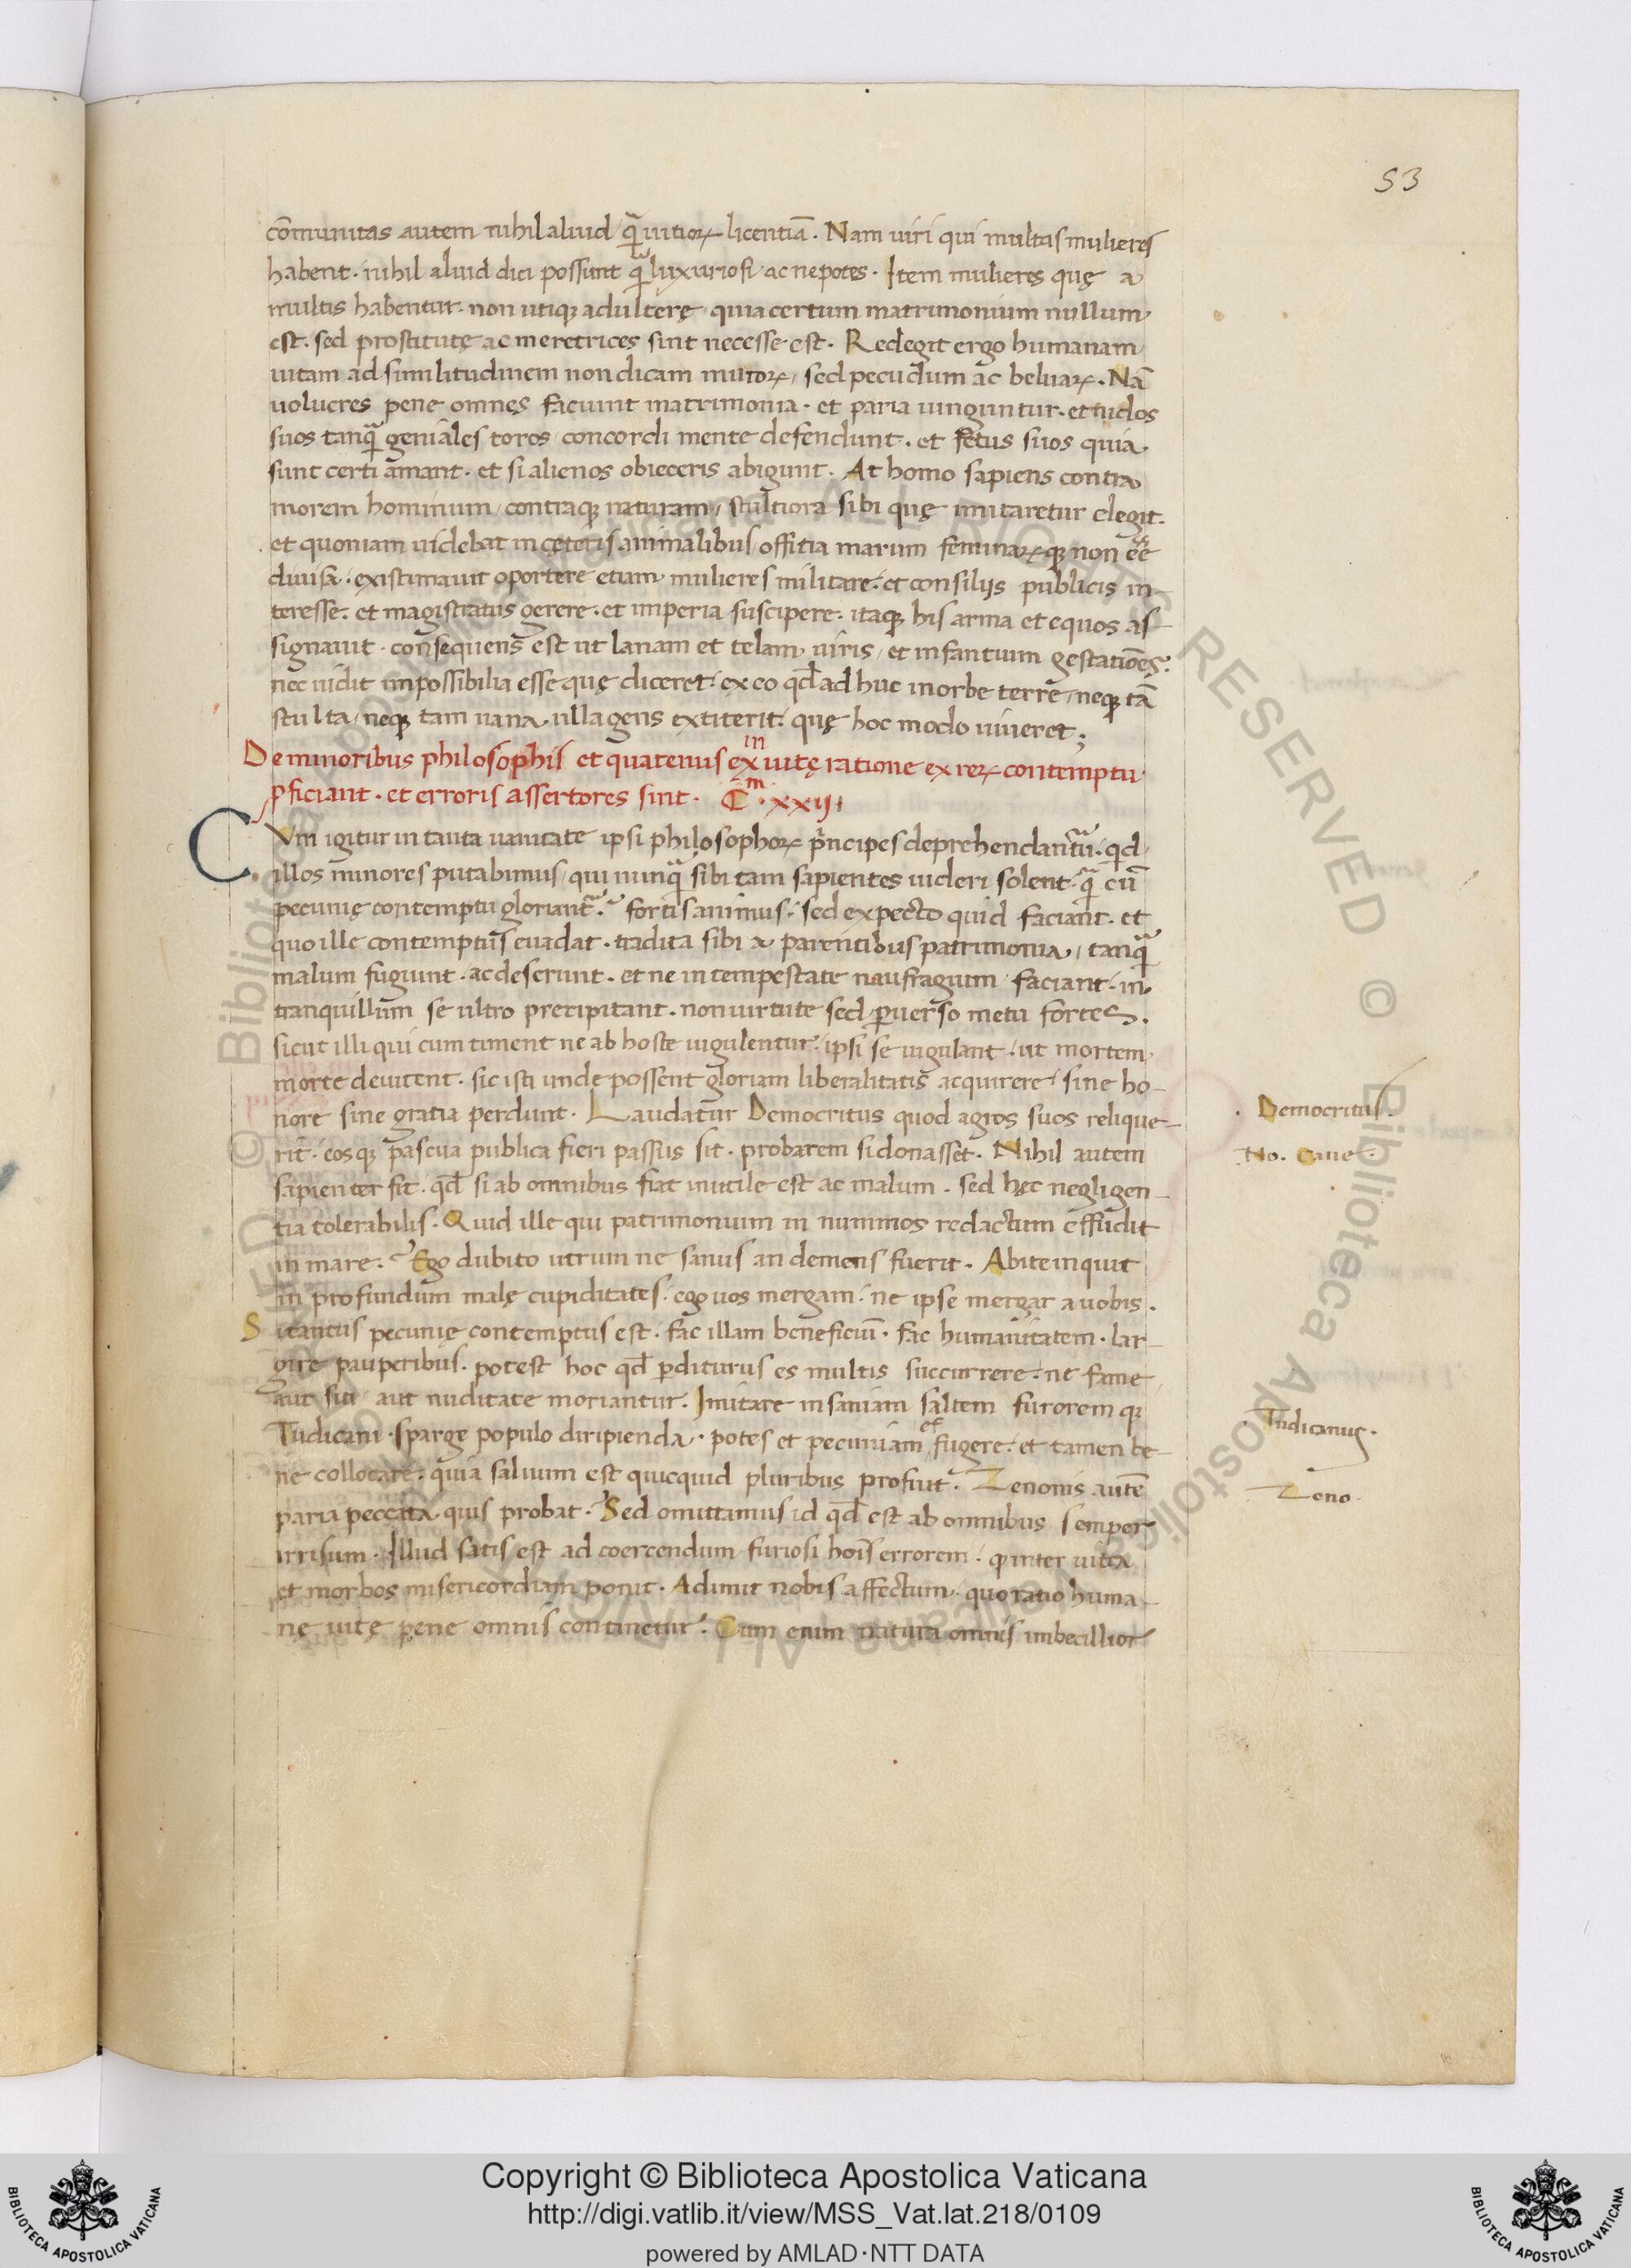 53
cōmunitas autem nihil aliud quā uitioꝝ licentiā. Nam uiri qui multas mulieres
habent. nihil aliud dici possunt quā luxuriosi ac nepotes. Item mulieręs quę a
multis habentur. non utiqꝫ adulterę quia certum matrimonium nullum
est. sed prostitutę ac meretrices sint necesse est. Redegit ergo humanam
uitam ad similitudinem non dicam mutoꝝ, sed pecudum ac beluaꝝ. Nā
uolucres pene omnęs faciunt matrimonia. et paria iunguntur. et nidos
suos tanquā geniales toros concordi mente defendunt. et fętus suos quia
sunt certi amant. et si alienos obieceris abigunt. At homo sapiens contra
morem hominum, contraqꝫ naturam, stultiora sibi quę imitaretur elegit.
et quoniam uidebat in cęteris animalibus offitia marum feminaꝝqꝫ non eē
diuisa. existimauit oportere etiam mulieres militare. et consiliĳs publicis in-
teresse. et magistratus gerere. et imperia suscipere. itaqꝫ his arma et equos as-
signauit. consequens est ut lanam et telam uiris, et infantium gestatiōęs.
nec uidit impossibilia esse quę diceret. ex eo qđ ad huc in orbe terre, neqꝫ tā
stulta, neqꝫ tam uana ulla gens extiterit. quę hoc modo uiueret;
De minoribus philosophis et quatenus ex in uitę ratione ex reꝝ contemptu
ꝓficiant. et erroris assertores sint. Cm. xxii
CVm igitur in tanta uanitate ipsi philosophoꝝ prīcipes deprehendantur. qid
illos minores putabimus, qui nunquā sibi tam sapientes uideri solent. quā cū
pecunię contemptu gloriantur. fortis animus. sed expecto quid faciant. et
quo ille contemptus euadat. tradita sibi a parentibus patrimonia, tanquā
malum fugiunt. ac deserunt. et ne in tempestate naufragium faciant. in
tranquillum se ultro precipitant. non uirtute sed ꝑuerso metu fortes.
sicut illi qui cum timent ne ab hoste iugulentur. ipsi se iugulant. ut mortem
morte deuitent. sic isti unde possent gloriam liberalitatis acquirere. sine ho-
nore sine gratia perdunt. Laudatur Democritus quod agros suos relique-
rit. eosqꝫ pascua publica fieri passus sit. probarem si donasset. Nihil autem
sapienter fit. qđ si ab omnibus fiat inutile est ac malum. sed hęc negligen-
tia tolerabilis. Quid ille qui patrimonium in nummos redactum effudit
in mare. Ego dubito utrum ne sanus an demens fuerit. Abite inquit
in profundum malę cupiditates. ego uos mergam. ne ipse mergar a uobis.
Si tantus pecunię contemptus est. fac illam beneficiū. fac humanitatem. lar-
gire pauperibus. potest hoc qđ ꝑditurus es multis succurrere. ne fame
aut siti aut nuditate moriantur. Imitare insaniam saltem furoremqꝫ
Tudicani. sparge populo diripienda. potes et pecuniam ef fugere. et tamen be-
ne collocare. quia saluum est quicquid pluribus profuit. Zenonis autē
paria peccata quis probat. Sed omittamus id qđ est ab omnibus semper
irrisum. Illud satis est ad coercendum furiosi hoīs errorem. ꝙ inter uitia
et morbos misericordiam ponit. Adimit nobis affectum. quo ratio huma-
nę uitę pene omnis continetur. Cum enim natura omnis imbecillior
Democritus.
No. Caue.
Tudicanus.
Zeno.
Copyright © Biblioteca Apostolica Vaticana
http://digi.vatlib.it/view/MSS_Vat.lat.218/0109
powered by AMLAD·NTT DATA
BIBLIOTECA APOSTOLICA VATICANA
BIBLIOTECA APOSTOLICA VATICANA